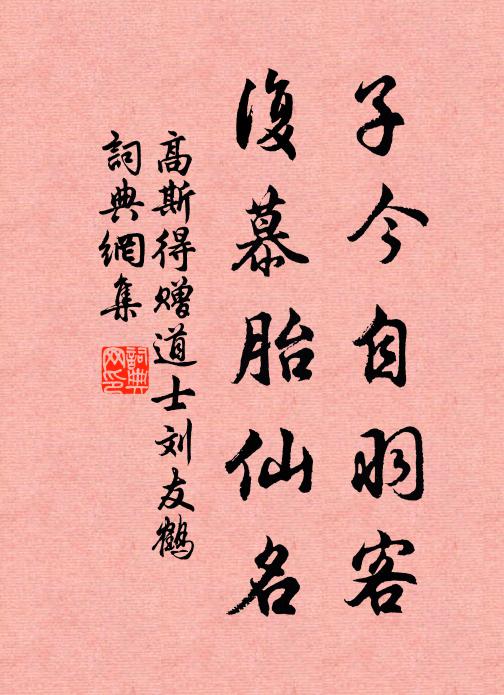 子今自羽客
復慕胎仙名
高斯得赠道士刘友鹤
詞典網集
詞典网印